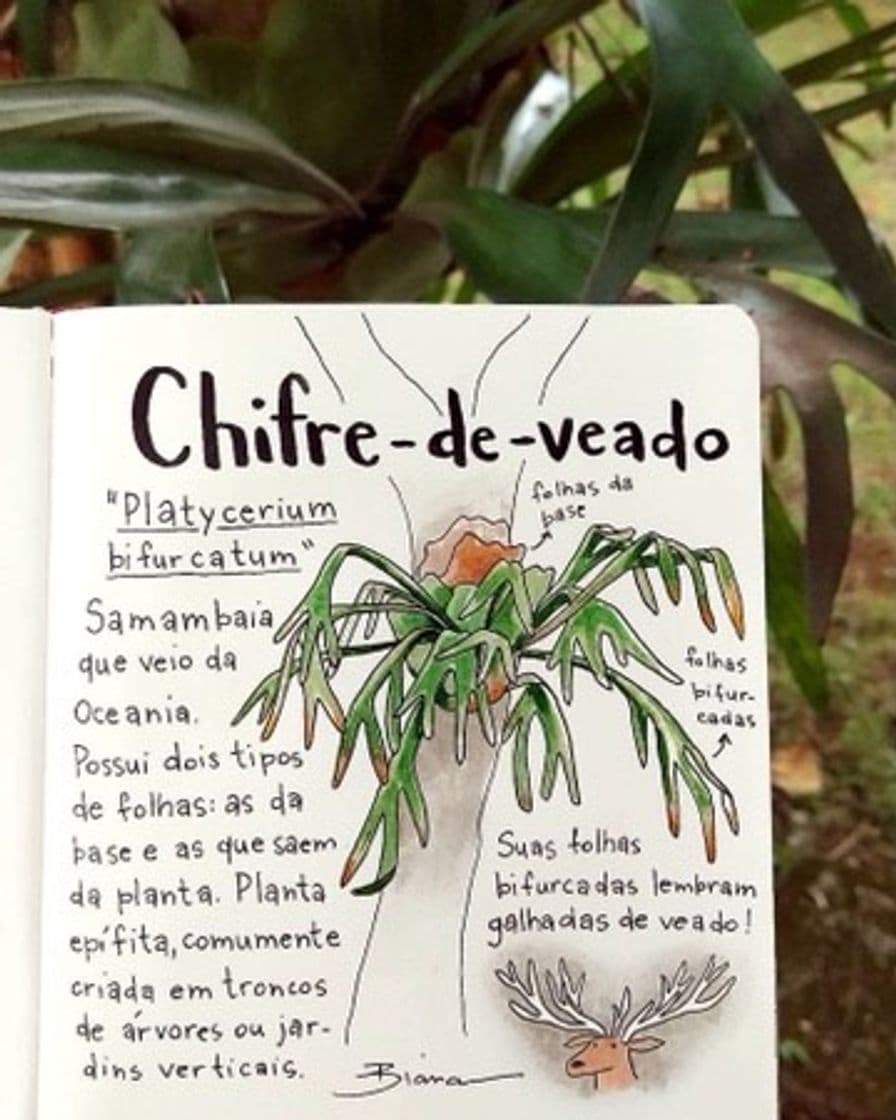 Chifre-de-veado
"Platycerium
bifurcatum"
folhas da
base
Samambaia
que veio da
Oceania.
Possui dois tipos
de folhas: as da
base e as que saem
da planta. Planta
epífita, comumente
criada em troncos
de árvores ou jar-
dins verticais.
folhas
bifur-
cadas
Suas folhas
bifurcadas lembram
galhadas de veado!
Biana